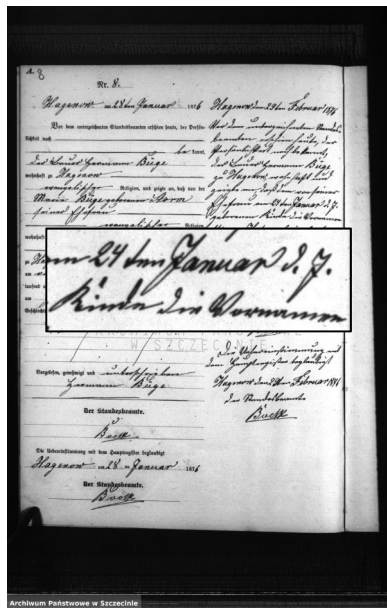 A.
8
Nr. 8.
Hagenow am 28ten Januar 1876
Vor dem unterzeichneten Standesbeamten erschien heute, der Persön-
lichkeit nach
be kannt,
der Bauer Hermann Büge
wohnhaft zu Hagenow
evangelischer Religion, und zeigte an, daß von der
Marie Büge geborenen Storm
seiner Ehefrau
evangelischer Religion
wohnhaft
zu Ha
am
tausend a
um
Geschlech
Vorgelesen, genehmigt und unterschrieben
Hermann Büge
Der Standesbeamte.
Die Uebereinstimmung mit dem Hauptregister beglaubigt
Hagenow am 28. Januar 1876
Der Standesbeamte.
Hagenow den 29ten Februar 1876
Vor dem unterzeichneten Standes-
beamten erschien heute, der
Persönlichkeit nach bekannt,
der Bauer Hermann Büge
zu Hagenow wohnhaft und
zeigte an, daß dem von seiner
Ehefrau am 24ten Januar d. J.
geborenen Kinde die Vornamen
am 24ten Januar d. J.
Kinde die Vornamen
ARCHIWUM PAŃSTWOWE
W SZCZECINIE
Die Uebereinstimmung mit
dem Hauptregister beglaubigt
Hagenow den Februar 1876
der Standesbeamte
Archiwum Państwowe w Szczecinie